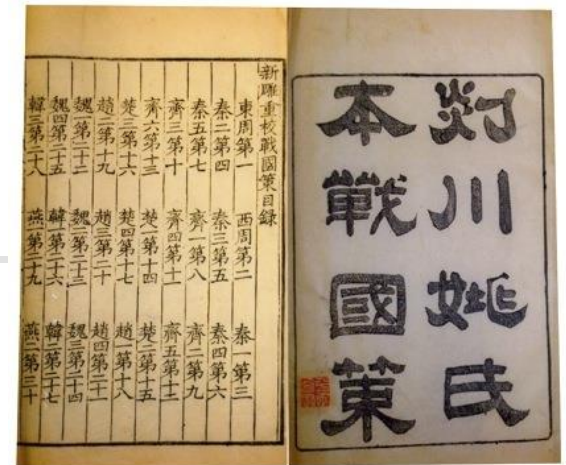 剡川姚氏
本戰國策
新雕重校戰國策目錄
東周第一 西周第二 秦一第三
秦二第四 秦三第五 秦四第六
秦五第七 齊一第八 齊二第九
齊三第十 齊四第十一 齊五第十二
齊六第十三 楚一第十四 楚二第十五
楚三第十六 楚四第十七 趙一第十八
趙二第十九 趙三第二十 趙四第二十一
魏一第二十二 魏二第二十三 魏三第二十四
魏四第二十五 韓一第二十六 韓二第二十七
韓三第二十八 燕一第二十九 燕二第三十